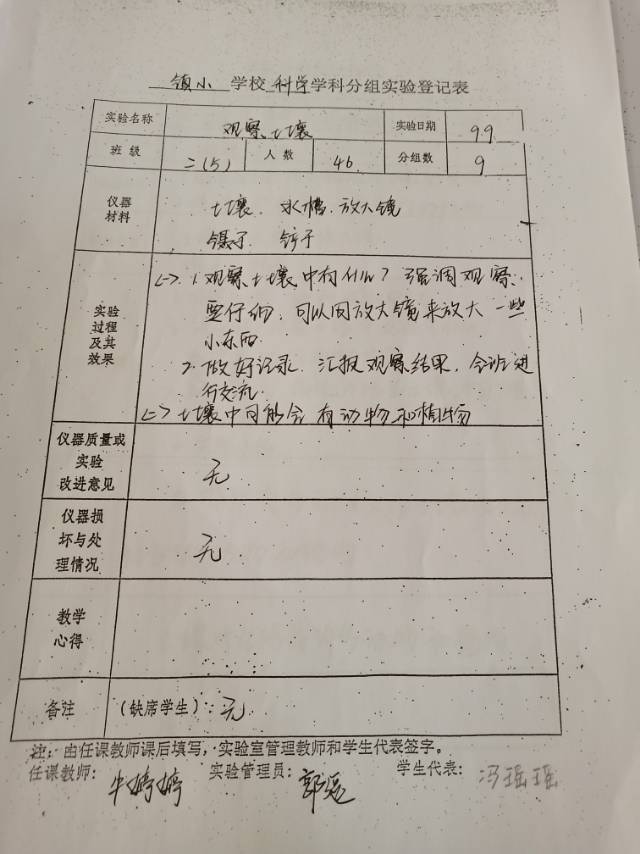 镇小 学校 科学 学科分组实验登记表
实验名称 观察土壤 实验日期 9.9
班级 二(5) 人数 46 分组数 9
仪器材料 土壤、水槽、放大镜
镊子 铲子
实验过程及其效果 <一>. 1.观察土壤中有什么？强调观察
要仔细，可以用放大镜来放大一些
小东西.
2.做好记录、汇报观察结果，全班进
行交流.
<二> 土壤中可能会有动物和植物
仪器质量或实验改进意见 无
仪器损坏与处理情况 无
教学心得
备注 (缺席学生)：无
注：由任课教师课后填写，实验室管理教师和学生代表签字。
任课教师：牛婷婷 实验管理员：郭 学生代表：冯瑶瑶